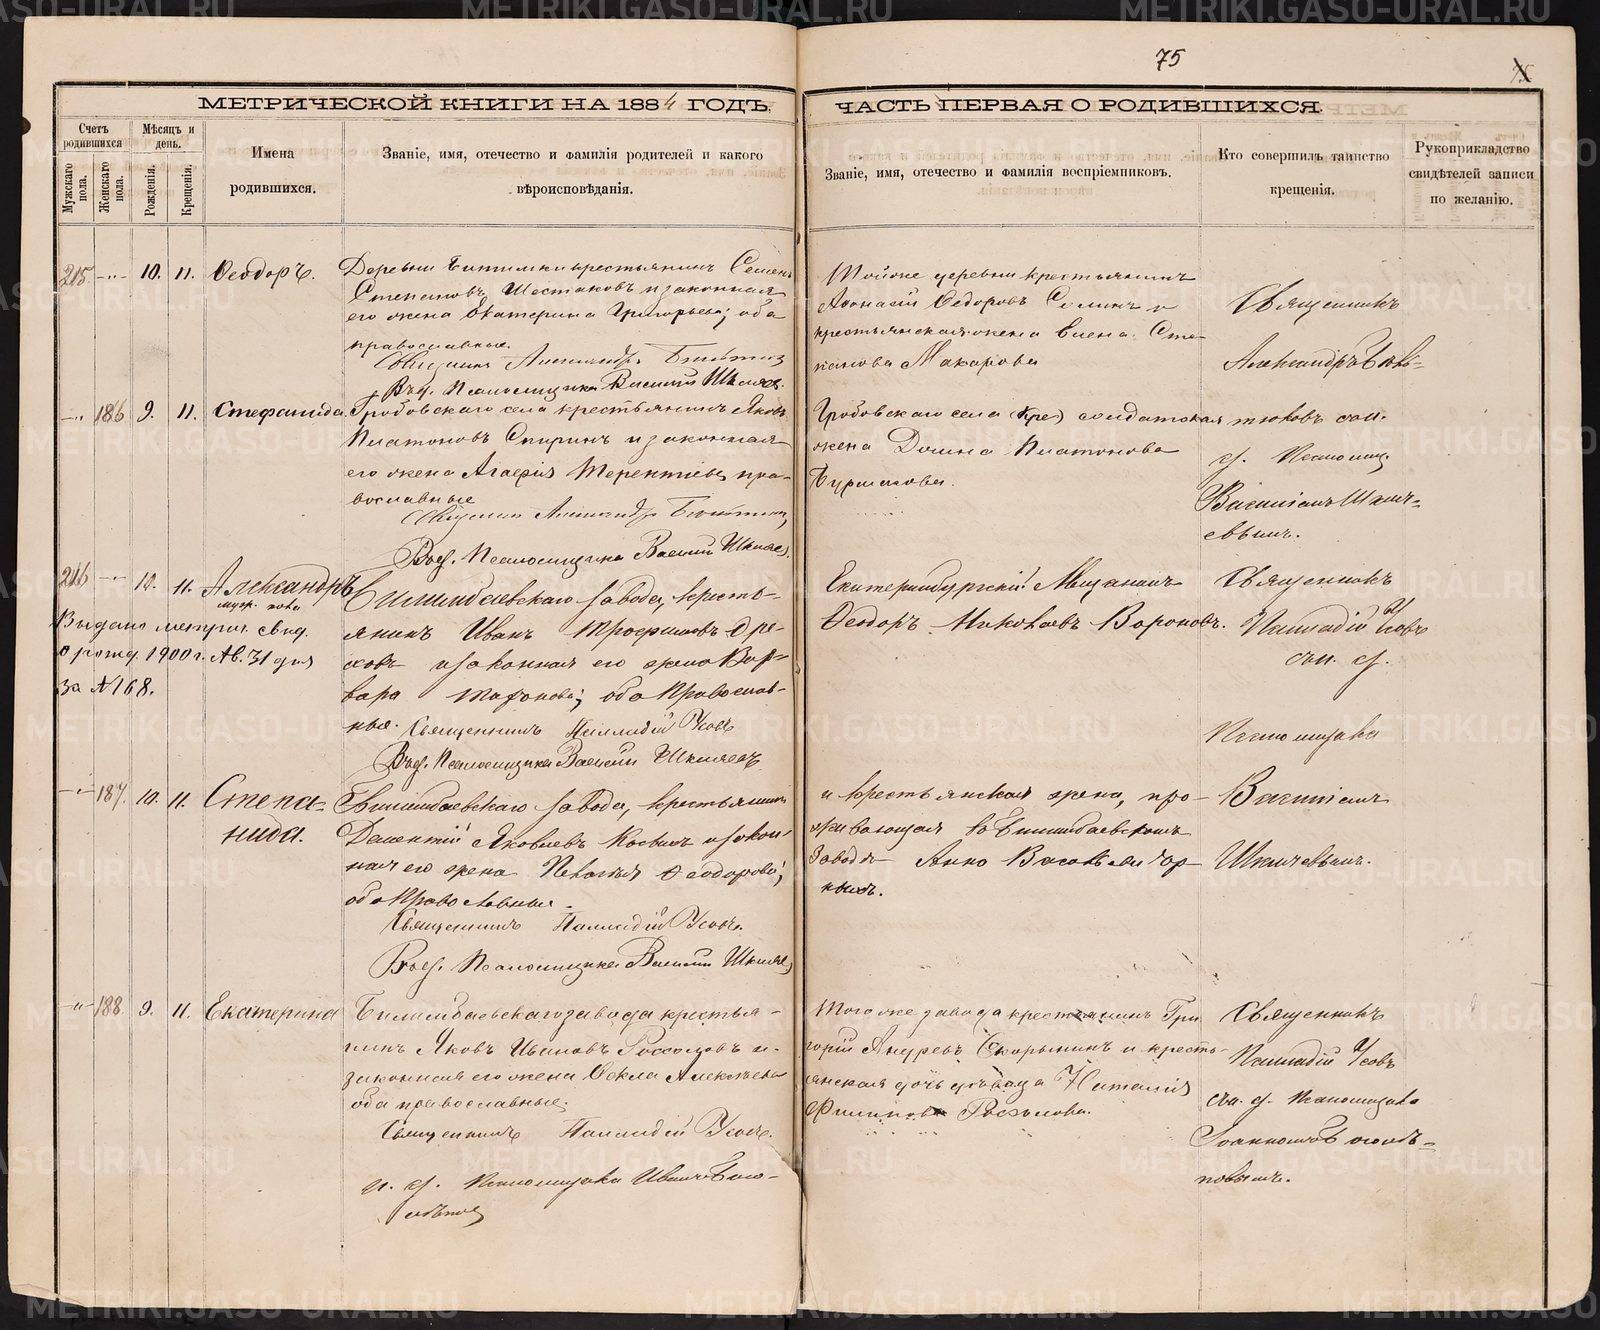 75
МЕТРИЧЕСКОЙ КНИГИ НА 1884 ГОДЪ.
ЧАСТЬ ПЕРВАЯ О РОДИВШИХСЯ.
Счетъ родившихся
Мужскаго пола.
Женскаго пола.
Мѣсяцъ и день.
Рожденія.
Крещенія.
Имена
родившихся.
Званіе, имя, отечество и фамилія родителей и какого
вѣроисповѣданія.
Званіе, имя, отечество и фамилія воспріемниковъ.
Кто совершилъ таинство
крещенія.
Рукоприкладство
свидѣтелей записи
по желанію.
215. -"- 10. 11. Ѳеодоръ.
Деревни Битимки крестьянинъ Семенъ
Степановъ Шестаковъ и законная
его жена Екатерина Григорьева; оба
православные.
Священникъ Александръ
Въ д. Псаломщика Василій Шкляевъ.
Тойже деревни крестьянинъ
Аѳонасій Ѳедоровъ и
крестьянская жена Елена Сте-
панова Макарова
Священникъ
Александръ
-"- 186 9. 11. Стефанида.
Гробовскаго села крестьянинъ Яковъ
Платоновъ Спиринъ и законная
его жена Агаѳія Терентіева, пра-
вославные
Священникъ Александръ
Въ д. Псаломщика Василій Шкляевъ.
Гробовскаго села солдатская
жена Домна Платонова
съ и.
д. Псаломщ.
Василіемъ Шкля-
евымъ.
216 -"- 10. 11. Александръ
Выдано метрич. свид.
о рожд. 1900 г. Ав. 31 дня
за № 168.
Билимбаевскаго завода, кресть-
янинъ Иванъ Трофимовъ Оре-
ховъ и законная его жена Вар-
вара оба Православ-
ные. Священникъ Палладій Усовъ
Въ д. Псаломщика Василій Шкляевъ
Екатеринбургскій Мѣщанинъ
Ѳеодоръ Николаевъ Вороновъ.
Священникъ
Палладій Усовъ
съ и. д.
Псаломщика
-"- 187. 10. 11. Степа-
нида.
Билимбаевскаго завода, крестьянинъ
Дементій Яковлевъ и закон-
ная его жена Пелагія Ѳеодорова;
оба Православные.
Священникъ Палладій Усовъ.
Въ д. Псаломщика Василій Шкляевъ
и крестьянская жена, про-
живающая въ Билимбаевскомъ
Заводѣ Анна Васильева Чор-
ныхъ.
Василіемъ
Шкляевымъ.
-"- 188 9. 11. Екатерина
Билимбаевскаго завода крестья-
нинъ Яковъ Ивановъ и
законная его жена Ѳекла Алексѣева
оба православные.
Священникъ Палладій Усовъ.
и. д. Псаломщика Иванъ Бого-
лѣповъ
Тогоже завода крестьянинъ Гри
горій Андреевъ Скорынинъ и кресть-
янская дочь дѣвица Наталія
Филиппова
Священникъ
Палладій Усовъ
съ и. д. Псаломщика
Іоанномъ Боголѣ-
повымъ.
METRIKI.GASO-URAL.RU